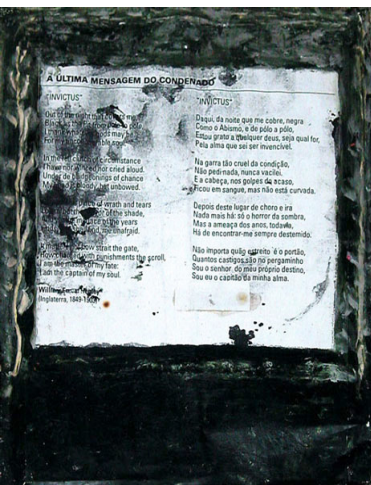 A ÚLTIMA MENSAGEM DO CONDENADO
"INVICTUS"
Out of the night that
Black as the
I thank whatever gods may be
For my soul.
In the fell clutch of circumstance
I have not winced nor cried aloud.
Under de bludgeonings of chance
My head is bloody, but unbowed.
place of wrath and tears
of the shade,
of the years
me, unafraid.
strait the gate,
How charged with punishments the scroll,
I am the master of my fate:
I am the captain of my soul.
William
(Inglaterra, 1849-1903)
"INVICTUS"
Daqui, da noite que me cobre, negra
Como o Abismo, e de pólo a pólo,
Estou grato a qualquer deus, seja qual for,
Pela alma que sei ser invencível.
Na garra tão cruel da condição,
Não pedi nada, nunca vacilei.
E a cabeça, nos golpes do acaso,
Ficou em sangue, mas não está curvada.
Depois deste lugar de choro e ira
Nada mais há: só o horror da sombra,
Mas a ameaça dos anos, todavia,
Há de encontrar-me sempre destemido.
Não importa quão estreito é o portão,
Quantos castigos são no pergaminho
Sou o senhor do meu próprio destino,
Sou eu o capitão da minha alma.